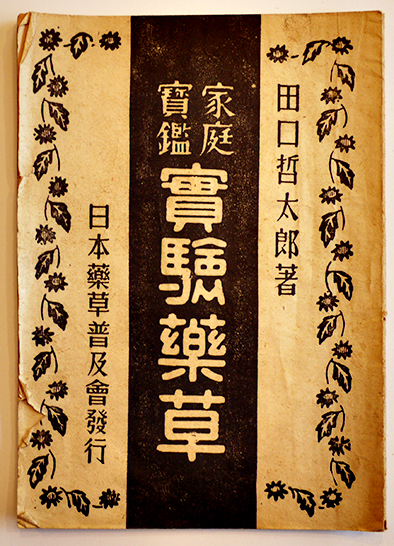 田口哲太郎著
家庭
寶鑑
實驗藥草
日本藥草普及會發行